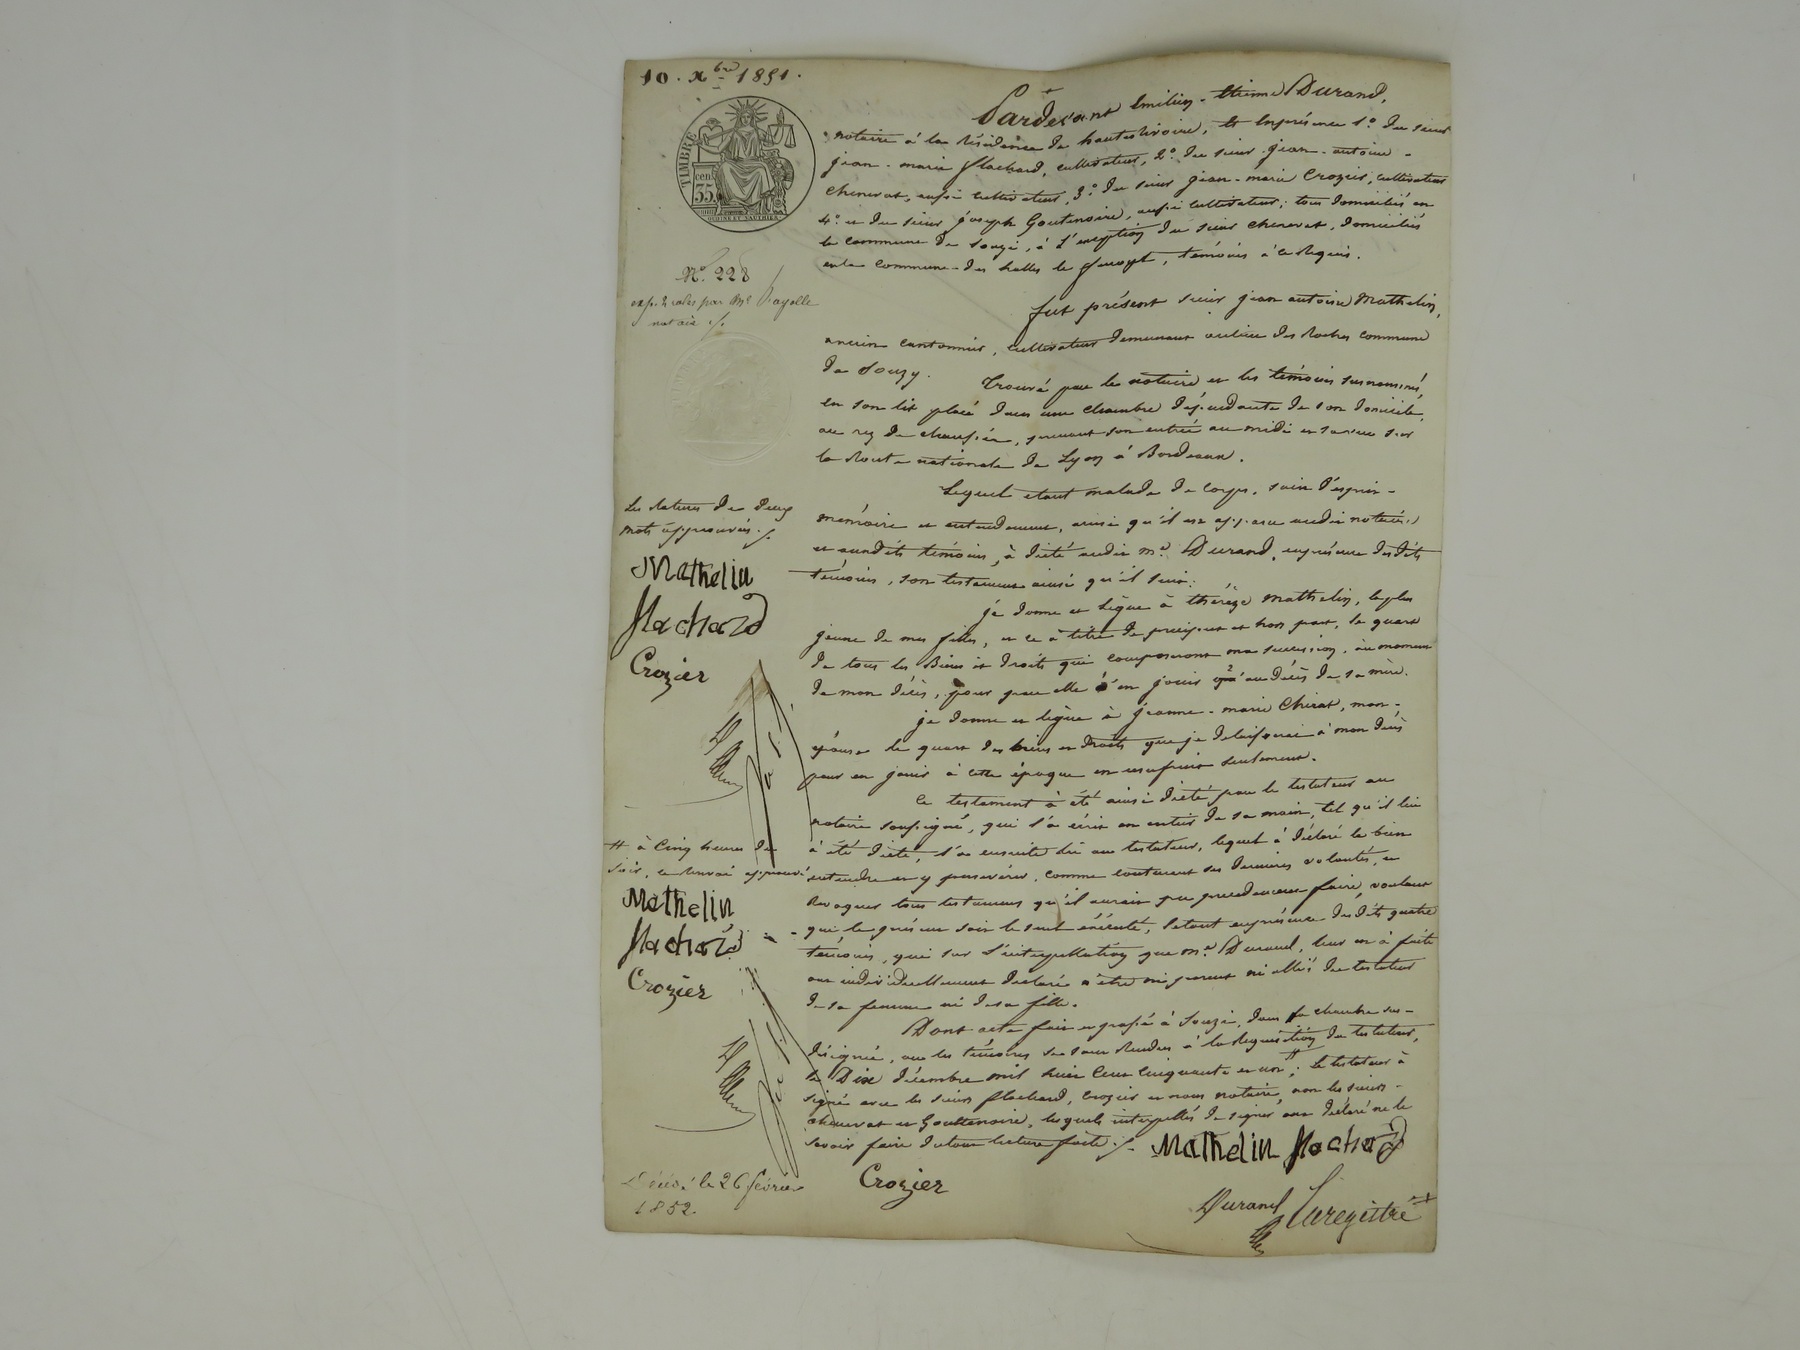 10. Xbre 1851.
Pardevant Emilien-Etienne Durand,
notaire à la Résidence de hauterivoire, Et Enprésence 1º. du sieur
jean-marie flachard, cultivateur, 2º. du sieur jean-antoine-
chenevat, aussi cultivateur, 3º. du sieur jean-marie Crozier, cultivateur
4º. et du sieur joseph Goutenoire, aussi cultivateur; tous domiciliés en
la commune de Souzi, à l'exeption du sieur chenevat, domicilié
en la commune des halles le fenoyt, témoins à ce Requis.
TIMBRE
35 cen
Nº. 228
exp. 2 roles par Me Fayolle
notaire ./.
fut présent sieur jean antoine Mathelin,
ancien cantonnier, cultivateur demeurant au lieu des Roches commune
de Souzy.
Trouvé par le notaire et les témoins susnommés,
en son lit placé dans une chambre dépendante de son domicile,
au rez de chaussée, prenant son entrée au midi et sa vue sur
la Route nationale de Lyon à Bordeaux.
Lequel etant malade de corps, sain d'esprit-
mémoire et entendement, ainsi qu'il est apparu audit notaire
et auxdits témoins, à dicté audit me. Durand, enprésence desdits
témoins, son testament ainsi qu'il suit:
Les Ratures de deux
mots approuvées ./.
Mathelin
flachard
Crozier
je donne et Lègue à thérèze Mathelin, la plus
jeune de mes filles, et ce à titre de préciput et hors part, le quart
de tous les Biens et droits qui composeront ma succession, au moment
de mon décès, pour par elle en jouir qu'au décès de sa mère.
je donne et lègue à jeanne-marie Chirat, mon-
épouse le quart des biens et droits que je delaisserai à mon décès
pour en jouir à cette époque en usufruit seulement.
Ce testament à été ainsi dicté par le testateur au
notaire soussigné, qui l'a écrit en entier de sa main, tel qu'il lui
à été dicté, l'a ensuite lu au testateur, lequel à déclaré le bien
entendre et y perseverer, comme contenant ses dernières volontés, et
Revoquer tous testamens qu'il aurait pu precedemment faire, voulant
que le présent soit le seul éxécuté, le tout enprésence desdits quatre
témoins, qui sur l'interpellation que me. Durand, leur en à faite
ont individuellement declaré n'être ni parent ni alliés du testateur
de sa femme ni de sa fille.
# à Cinq heures du
soir, ce renvoi approuvé
Mathelin
flachard
Crozier
Dont acte fait et passé à Souzi, dans la chambre sus-
désignée, ou les témoins se sont Rendus à la Requisition du testateur,
le Dix décembre mil huit Cent Cinquante et un #; le testateur à
signé avec les sieurs flachard, Crozier et nous notaire, non les sieurs-
chenevat et Gouttenoire, lesquels interpellés de signer ont déclaré ne le
savoir faire du tout lecture faite ./.
Mathelin flachard
Crozier
Durand
Enregistré
Décédé le 26 février
1852.